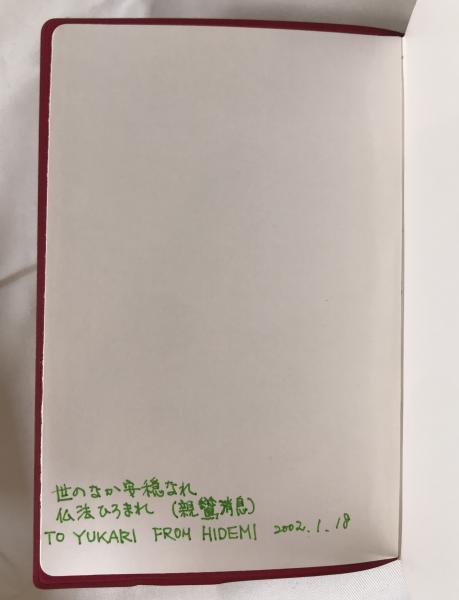 世のなか安穏なれ
仏法ひろまれ (親鸞消息)
TO YUKARI FROM HIDEMI 2002.1.18